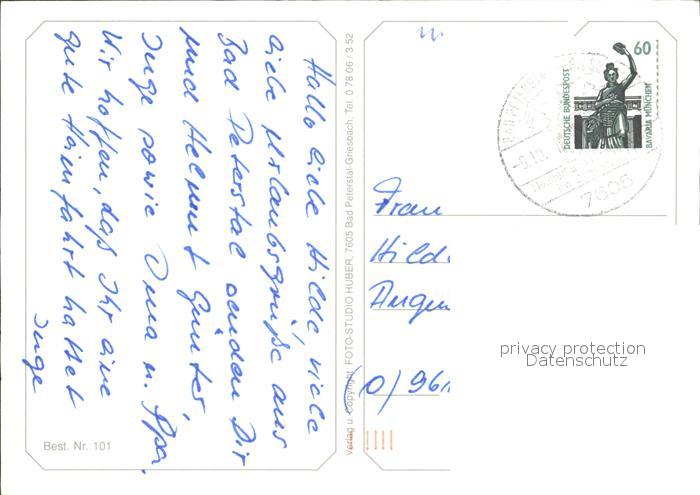 Hallo liebe Hilde, viele
liebe Urlaubsgrüße aus
Bad Peterstal senden Dir
und Helmut Günter,
Inge sowie Oma u. Opa.
Wir hoffen, daß Ihr eine
gute Heimfahrt hattet
Inge
Best. Nr. 101
Verlag u. Copyright FOTO-STUDIO HUBER, 7605 Bad Peterstal-Griesbach, Tel. 0 78 06 / 3 52
60
DEUTSCHE BUNDESPOST
BAVARIA MÜNCHEN
7605
Frau
Hild
Angel
(0) 961
privacy protection
Datenschutz